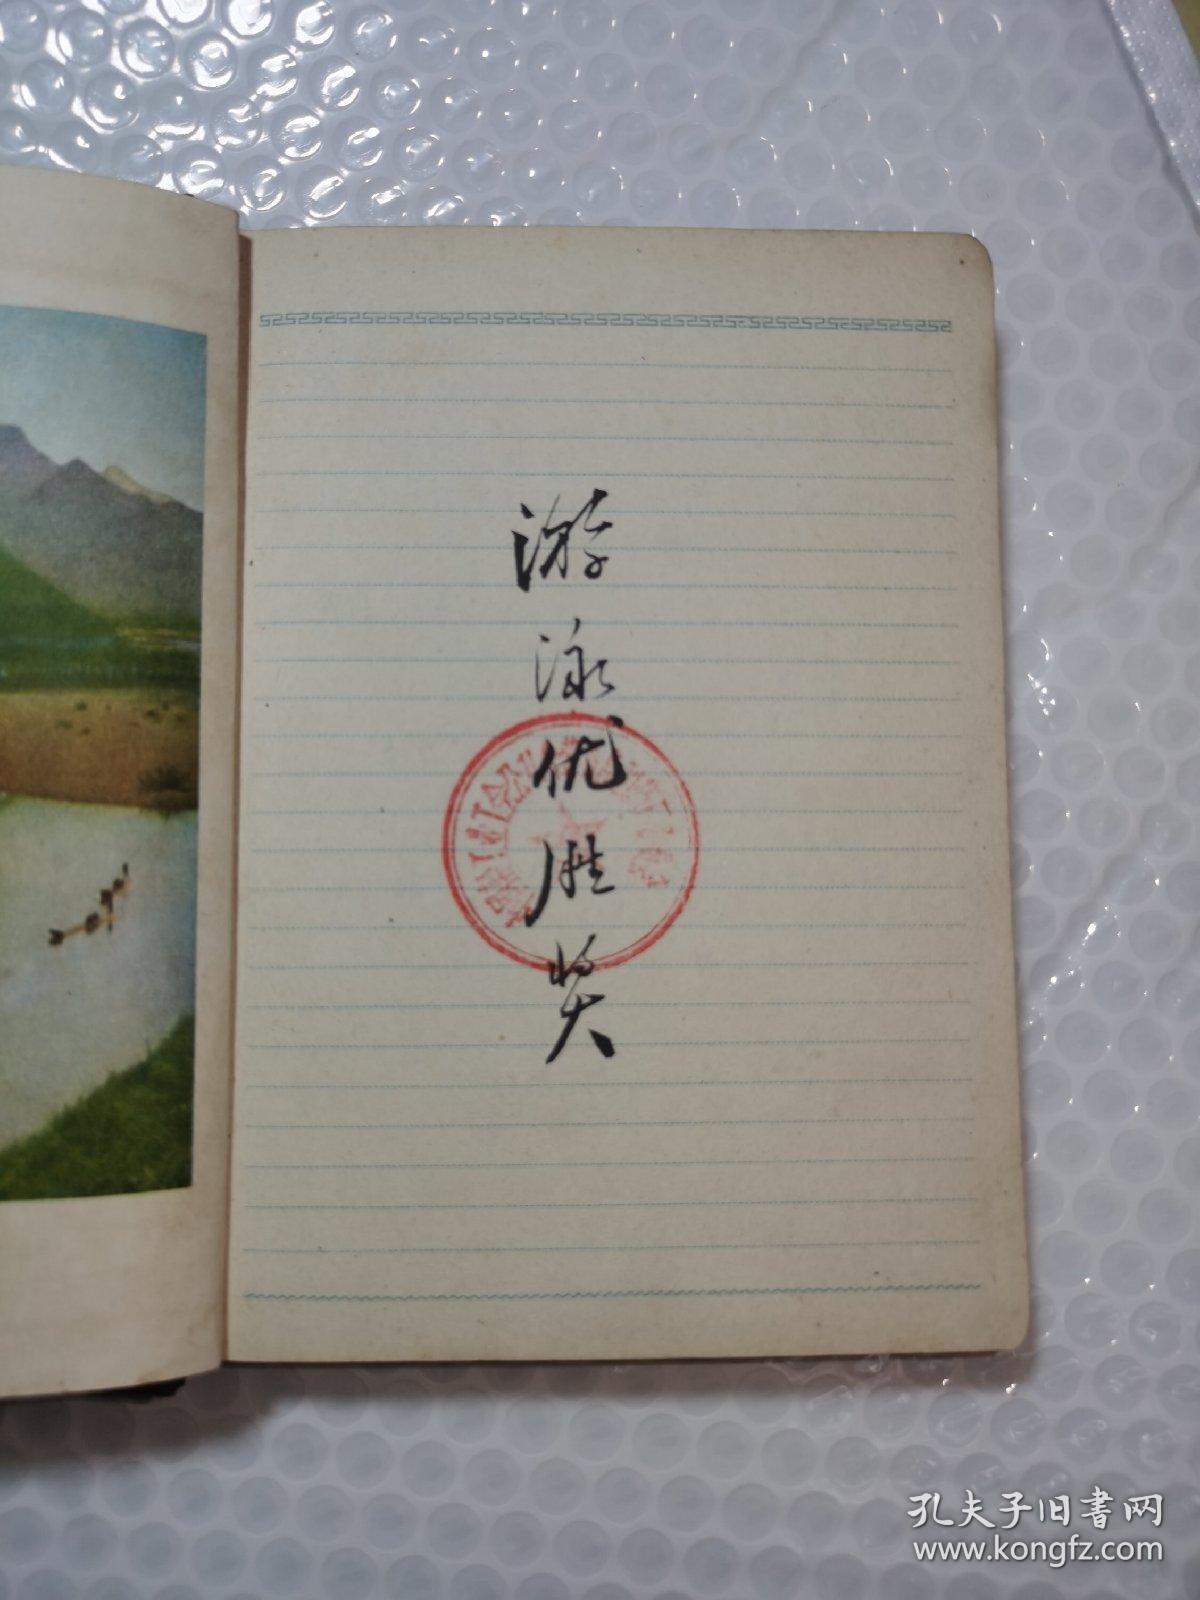 游泳优胜奖
孔夫子旧书网
www.kongfz.com